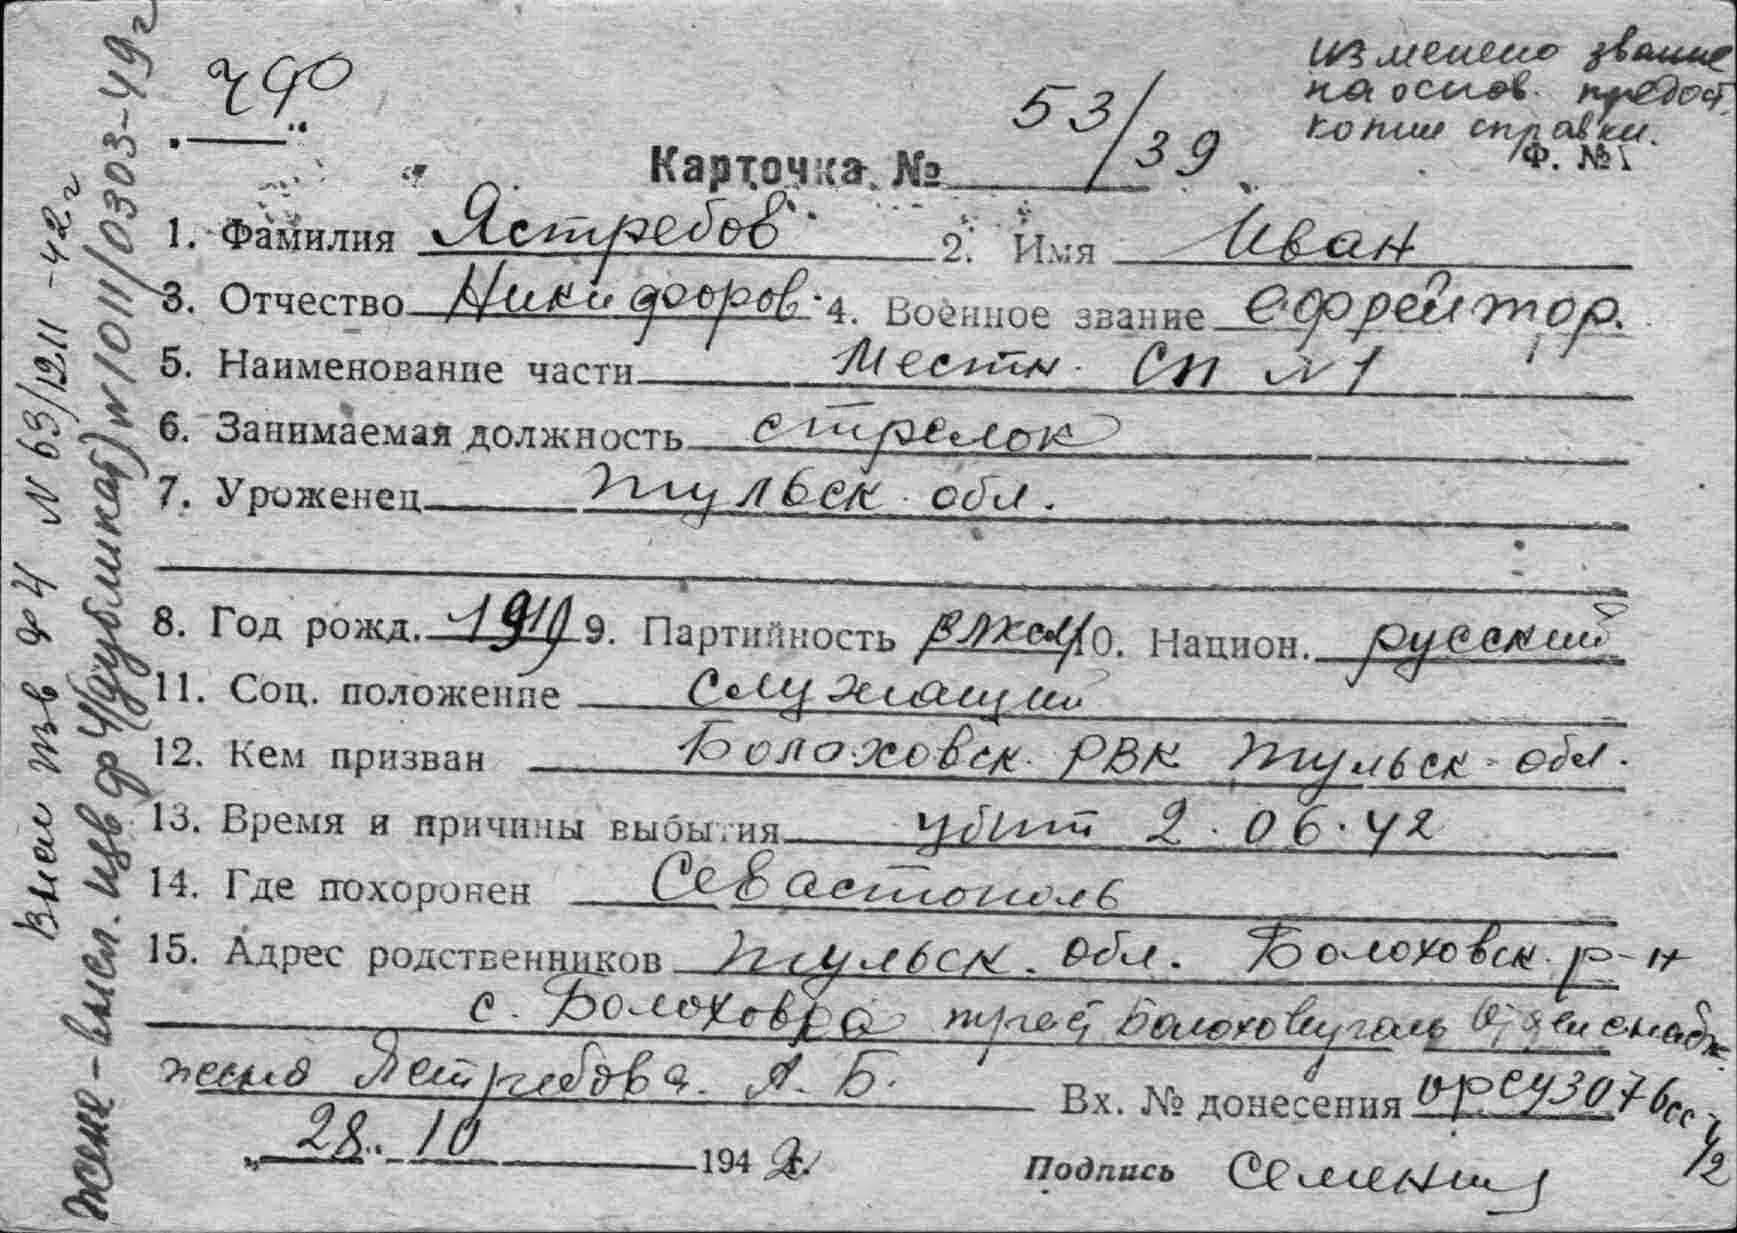 ЧФ
изменено звание
на основ. предост.
копии справки.
Ф. №1
Карточка № 53/39
1. Фамилия Ястребов 2. Имя Иван
3. Отчество Никифоров. 4. Военное звание ефрейтор.
5. Наименование части Местн. СП №1
6. Занимаемая должность стрелок
7. Уроженец Тульск. обл.
8. Год рожд. 1919 9. Партийность ВЛКСМ 10. Национ. русский
11. Соц. положение служащий
12. Кем призван Болоховск. РВК Тульск. обл.
13. Время и причины выбытия убит 2.06.42
14. Где похоронен Севастополь
15. Адрес родственников Тульск. обл. Болоховск. р-н
с. Болоховка трест Болоховуголь
жена Ястребова. А. Б. Вх. № донесения 3076сс
„28“ 10 1942г.
Подпись
Высл изв ф 4 N 63/1211-42г
Жене - высл. изв ф 4 (дубликат) N 1011/0303-49г